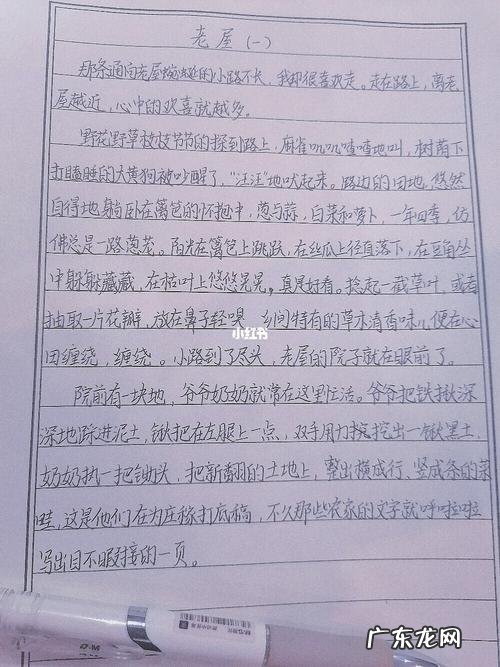 老屋（一）
那条通向老屋蜿蜒的小路不长，我却很喜欢走。走在路上，离老
屋越近，心中的欢喜就越多。
野花野草枝枝节节的探到路上，麻雀叽叽喳喳地叫，树荫下
打瞌睡的大黄狗被吵醒了，“汪汪”地吠起来。路边的田地，悠然
自得地躺卧在篱笆的怀抱中，葱与蒜，白菜和萝卜，一年四季，仿
佛总是一路葱茏。阳光在篱笆上跳跃，在丝瓜上径直落下，在豆角丛
中躲躲藏藏，在枯叶上悠悠晃晃，真是好看。捻起一截草叶，或者
抽取一片花瓣，放在鼻子轻嗅，乡间特有的草木清香味儿便在心
田缠绕，缠绕。小路到了尽头，老屋的院子就在眼前了。
院前有一块地，爷爷奶奶就常在这里忙活。爷爷把铁揪深
深地踩进泥土，锹把在左腿上一点，双手用力挖出一锹黑土，
奶奶执一把锄头，把新翻的土地上，整出横成行、竖成条的菜
畦，这是他们在为庄稼打底稿，不久那些农家的文字就呼啦啦
写出目不暇接的一页。
小红书
广东龙网